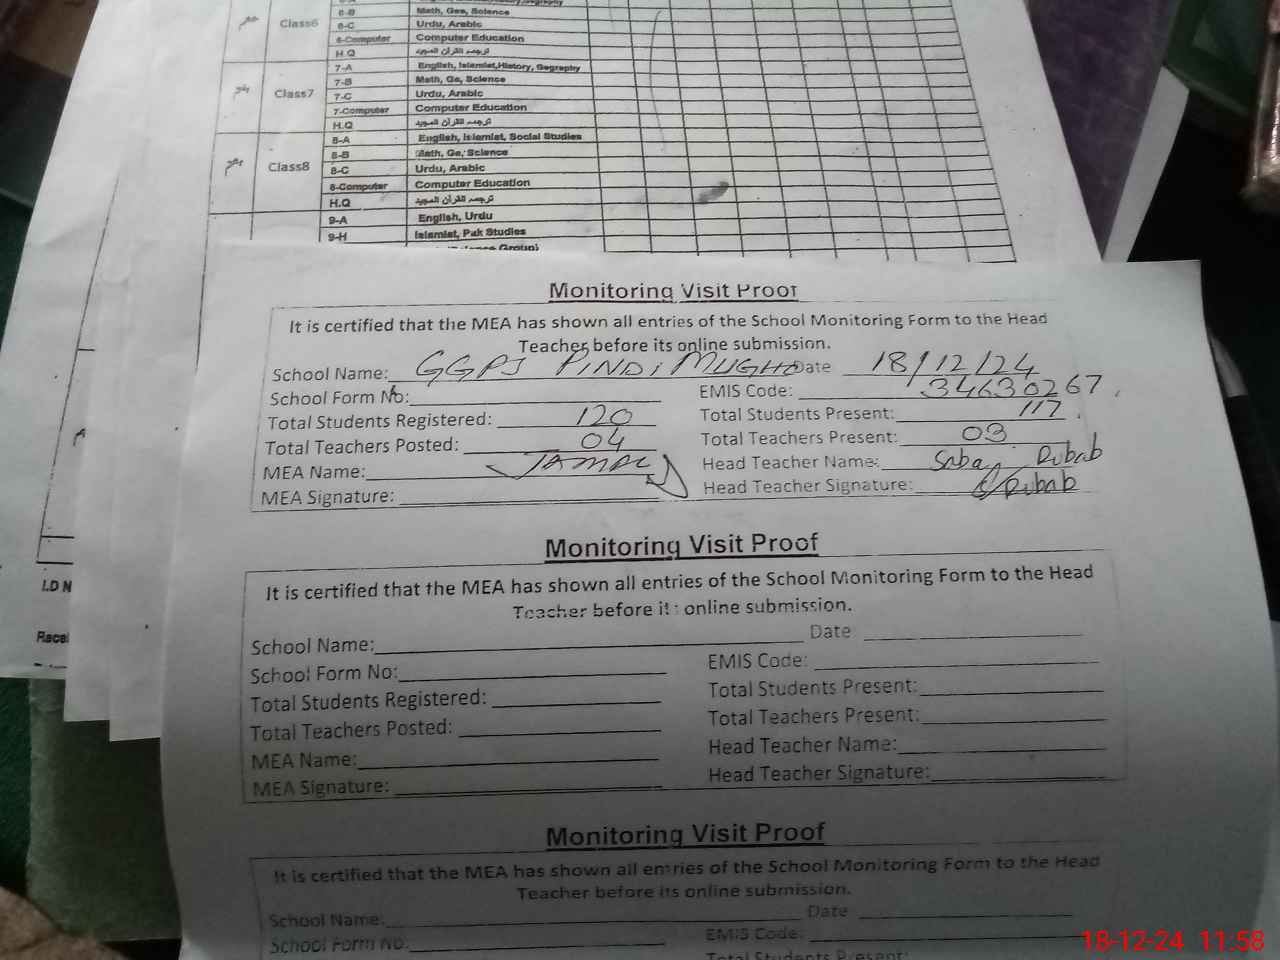 Class6
6-B Math, Gee, Science
6-C Urdu, Arabic
6-Computer Computer Education
H.Q
7-A English, Islamiat,History, Gegraphy
7-B Math, Ge, Science
Class7
7-C Urdu, Arabic
7-Computer Computer Education
H.Q
8-A English, Islamiat, Social Studies
8-B Math, Ge, Science
Class8
8-C Urdu, Arabic
8-Computer Computer Education
H.Q
9-A English, Urdu
9-H Islamiat, Pak Studies
Group)
I.D N
Monitoring Visit Proof
It is certified that the MEA has shown all entries of the School Monitoring Form to the Head
Teacher before its online submission.
School Name: GGPS PINDI MUGHO Date 18/12/24
School Form No: EMIS Code: 34630267
Total Students Registered: 120 Total Students Present: 117
Total Teachers Posted: 04 Total Teachers Present: 03
MEA Name: JAMAL Head Teacher Name: Saba Rubab
MEA Signature: Head Teacher Signature: Rubab
Monitoring Visit Proof
It is certified that the MEA has shown all entries of the School Monitoring Form to the Head
Teacher before its online submission.
School Name: Date
School Form No: EMIS Code:
Total Students Registered: Total Students Present:
Total Teachers Posted: Total Teachers Present:
MEA Name: Head Teacher Name:
MEA Signature: Head Teacher Signature:
Monitoring Visit Proof
It is certified that the MEA has shown all entries of the School Monitoring Form to the Head
Teacher before its online submission.
School Name: Date
School Form No: EMIS Code:
Total Students Present:
18-12-24 11:58